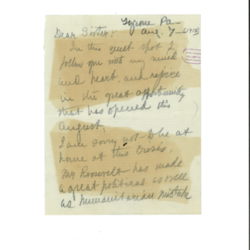 Tyrone Pa
Aug. 7 —
Dear Sister:—
In this quiet spot I
follow you with my mind
and heart and rejoice
in the great opportunity
that has opened this
August,
I am sorry not to be at
home at this crisis.
Mr Roosevelt has made
a great political as well
as humanitarian mistake